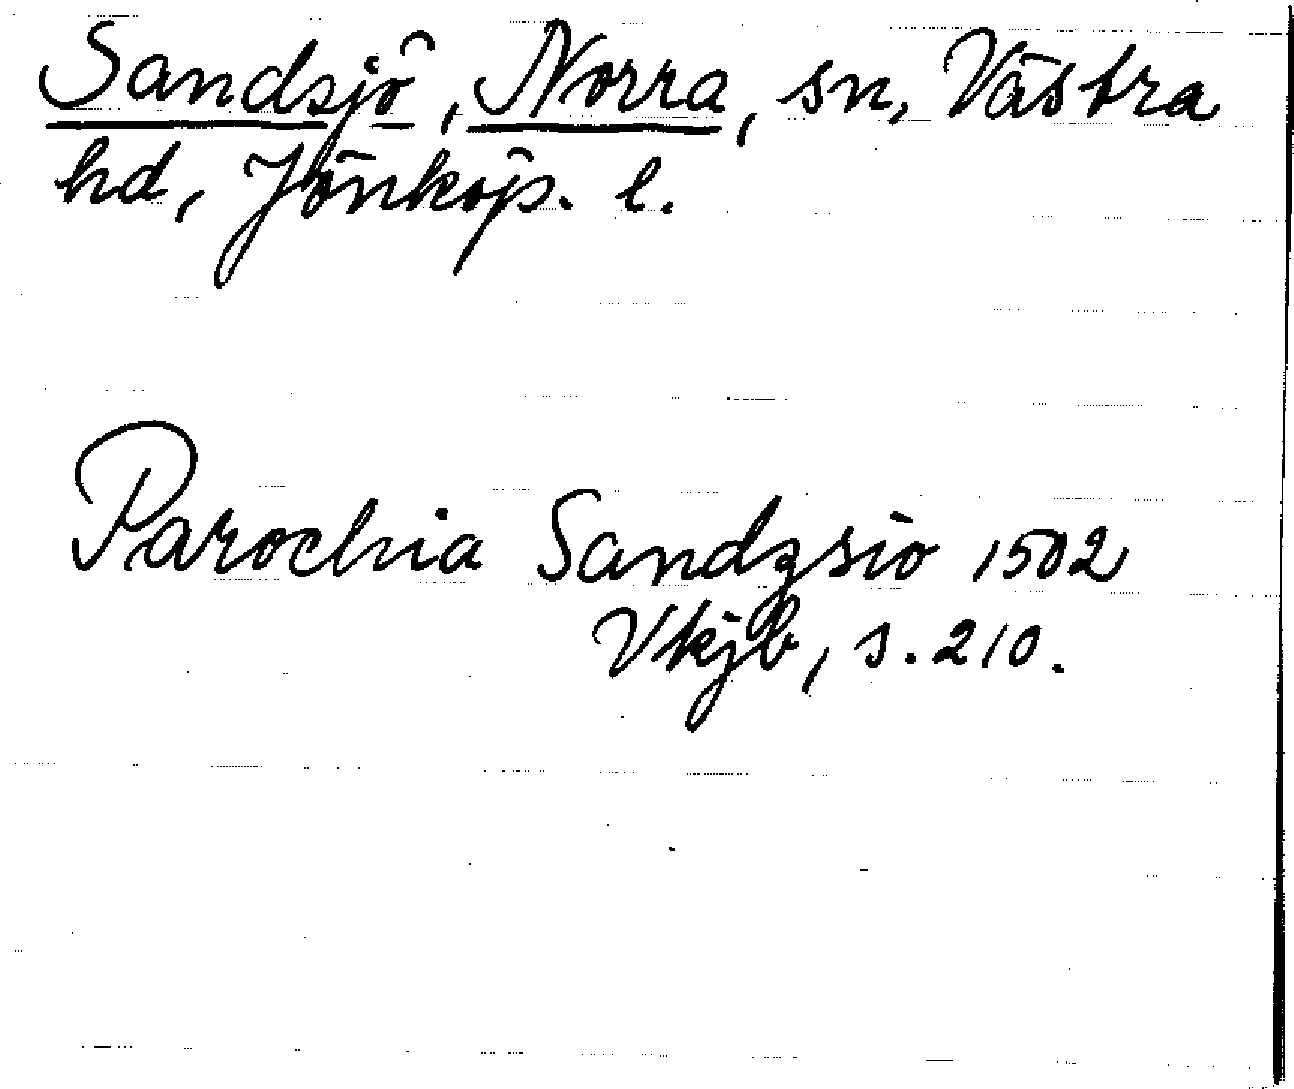 Sandsjö, Norra, sn, Västra
hd, Jönköp. l.
Parochia Sandzsio 1502
Vkjb, s. 210.